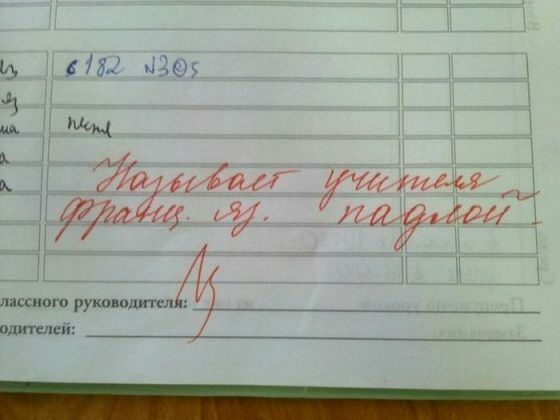 с182 №305
Называет учителя
франц. яз. падлой.
лассного руководителя:
одителей: